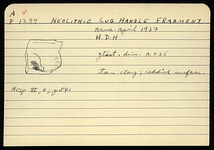 A
P 1299 NEOLITHIC LUG HANDLE FRAGMENT
March-April 1937
H.D.H
gtest. dim. 0.055
tan clay; reddish surface.
Hesp VI, 4, p. 541